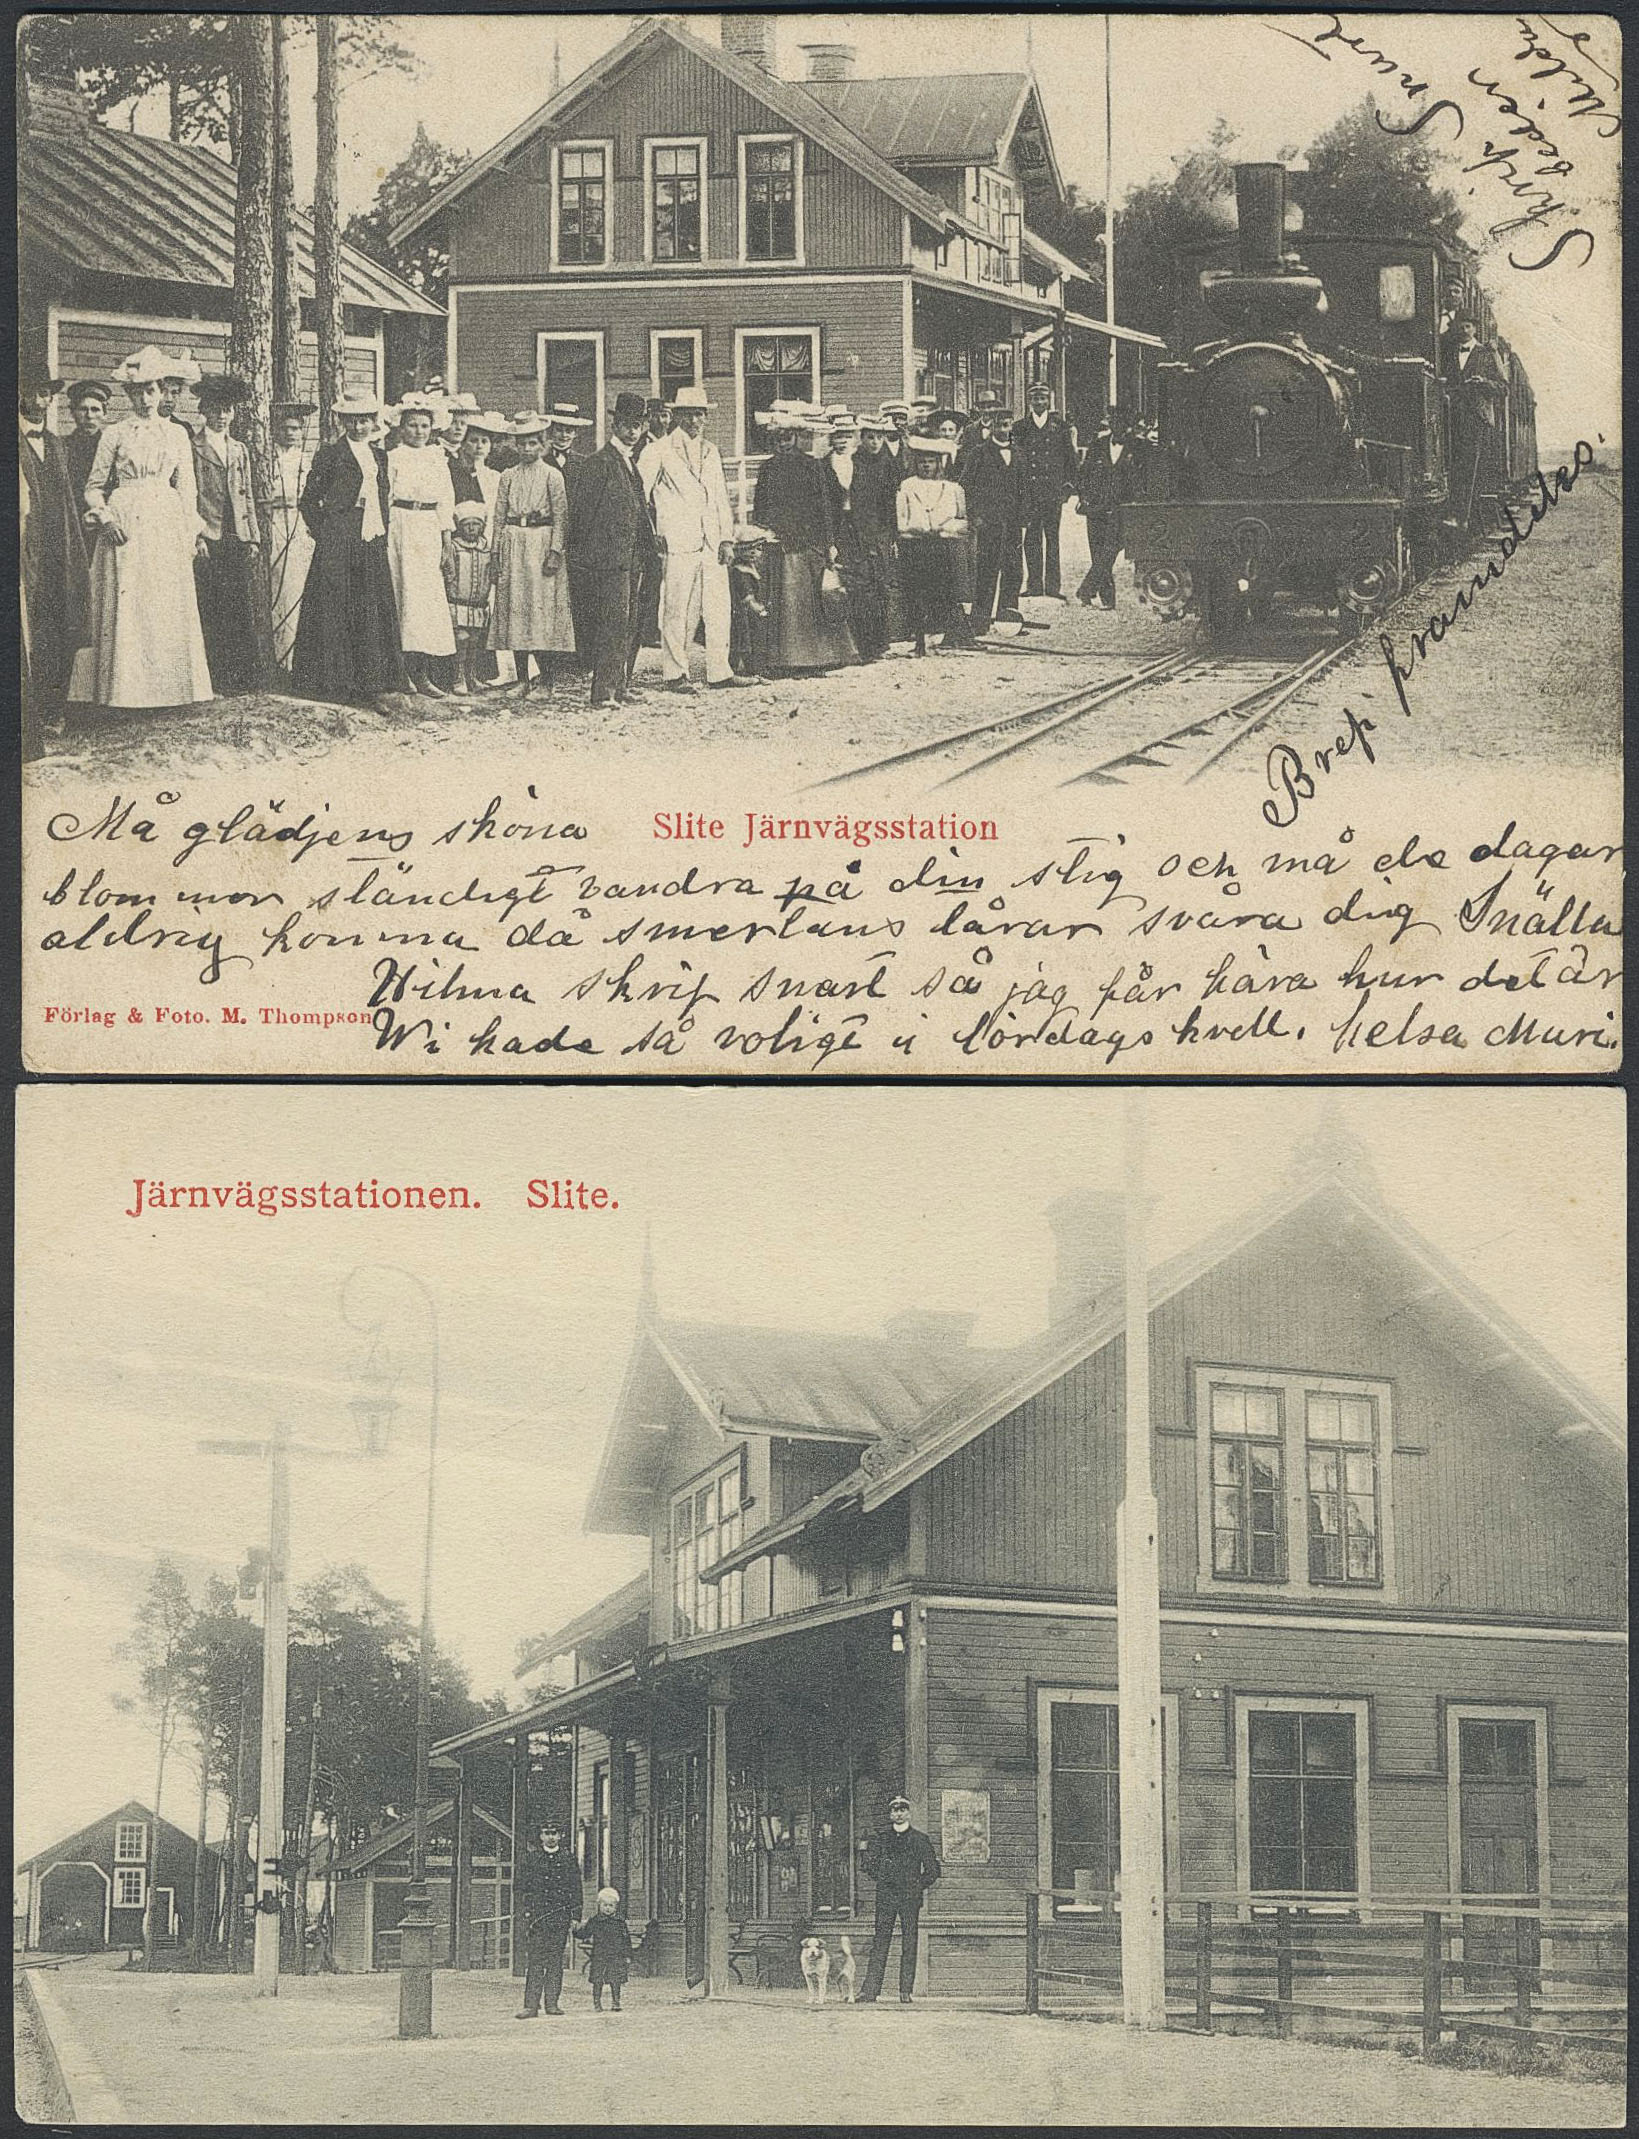 Snart
Skrif
sedan
Hilda
Bref
framdeles.
Må glädjens sköna
Slite Järnvägsstation
blommor ständigt vandra på din stig och må de dagar
aldrig komma då smertans tårar svära dig Snälla
Hilma skrif snart så jag får höra hur det är
Förlag & Foto. M. Thompson
Wi hade så roligt i lördags kvell. helsa Muri.
Järnvägsstationen. Slite.
2 2